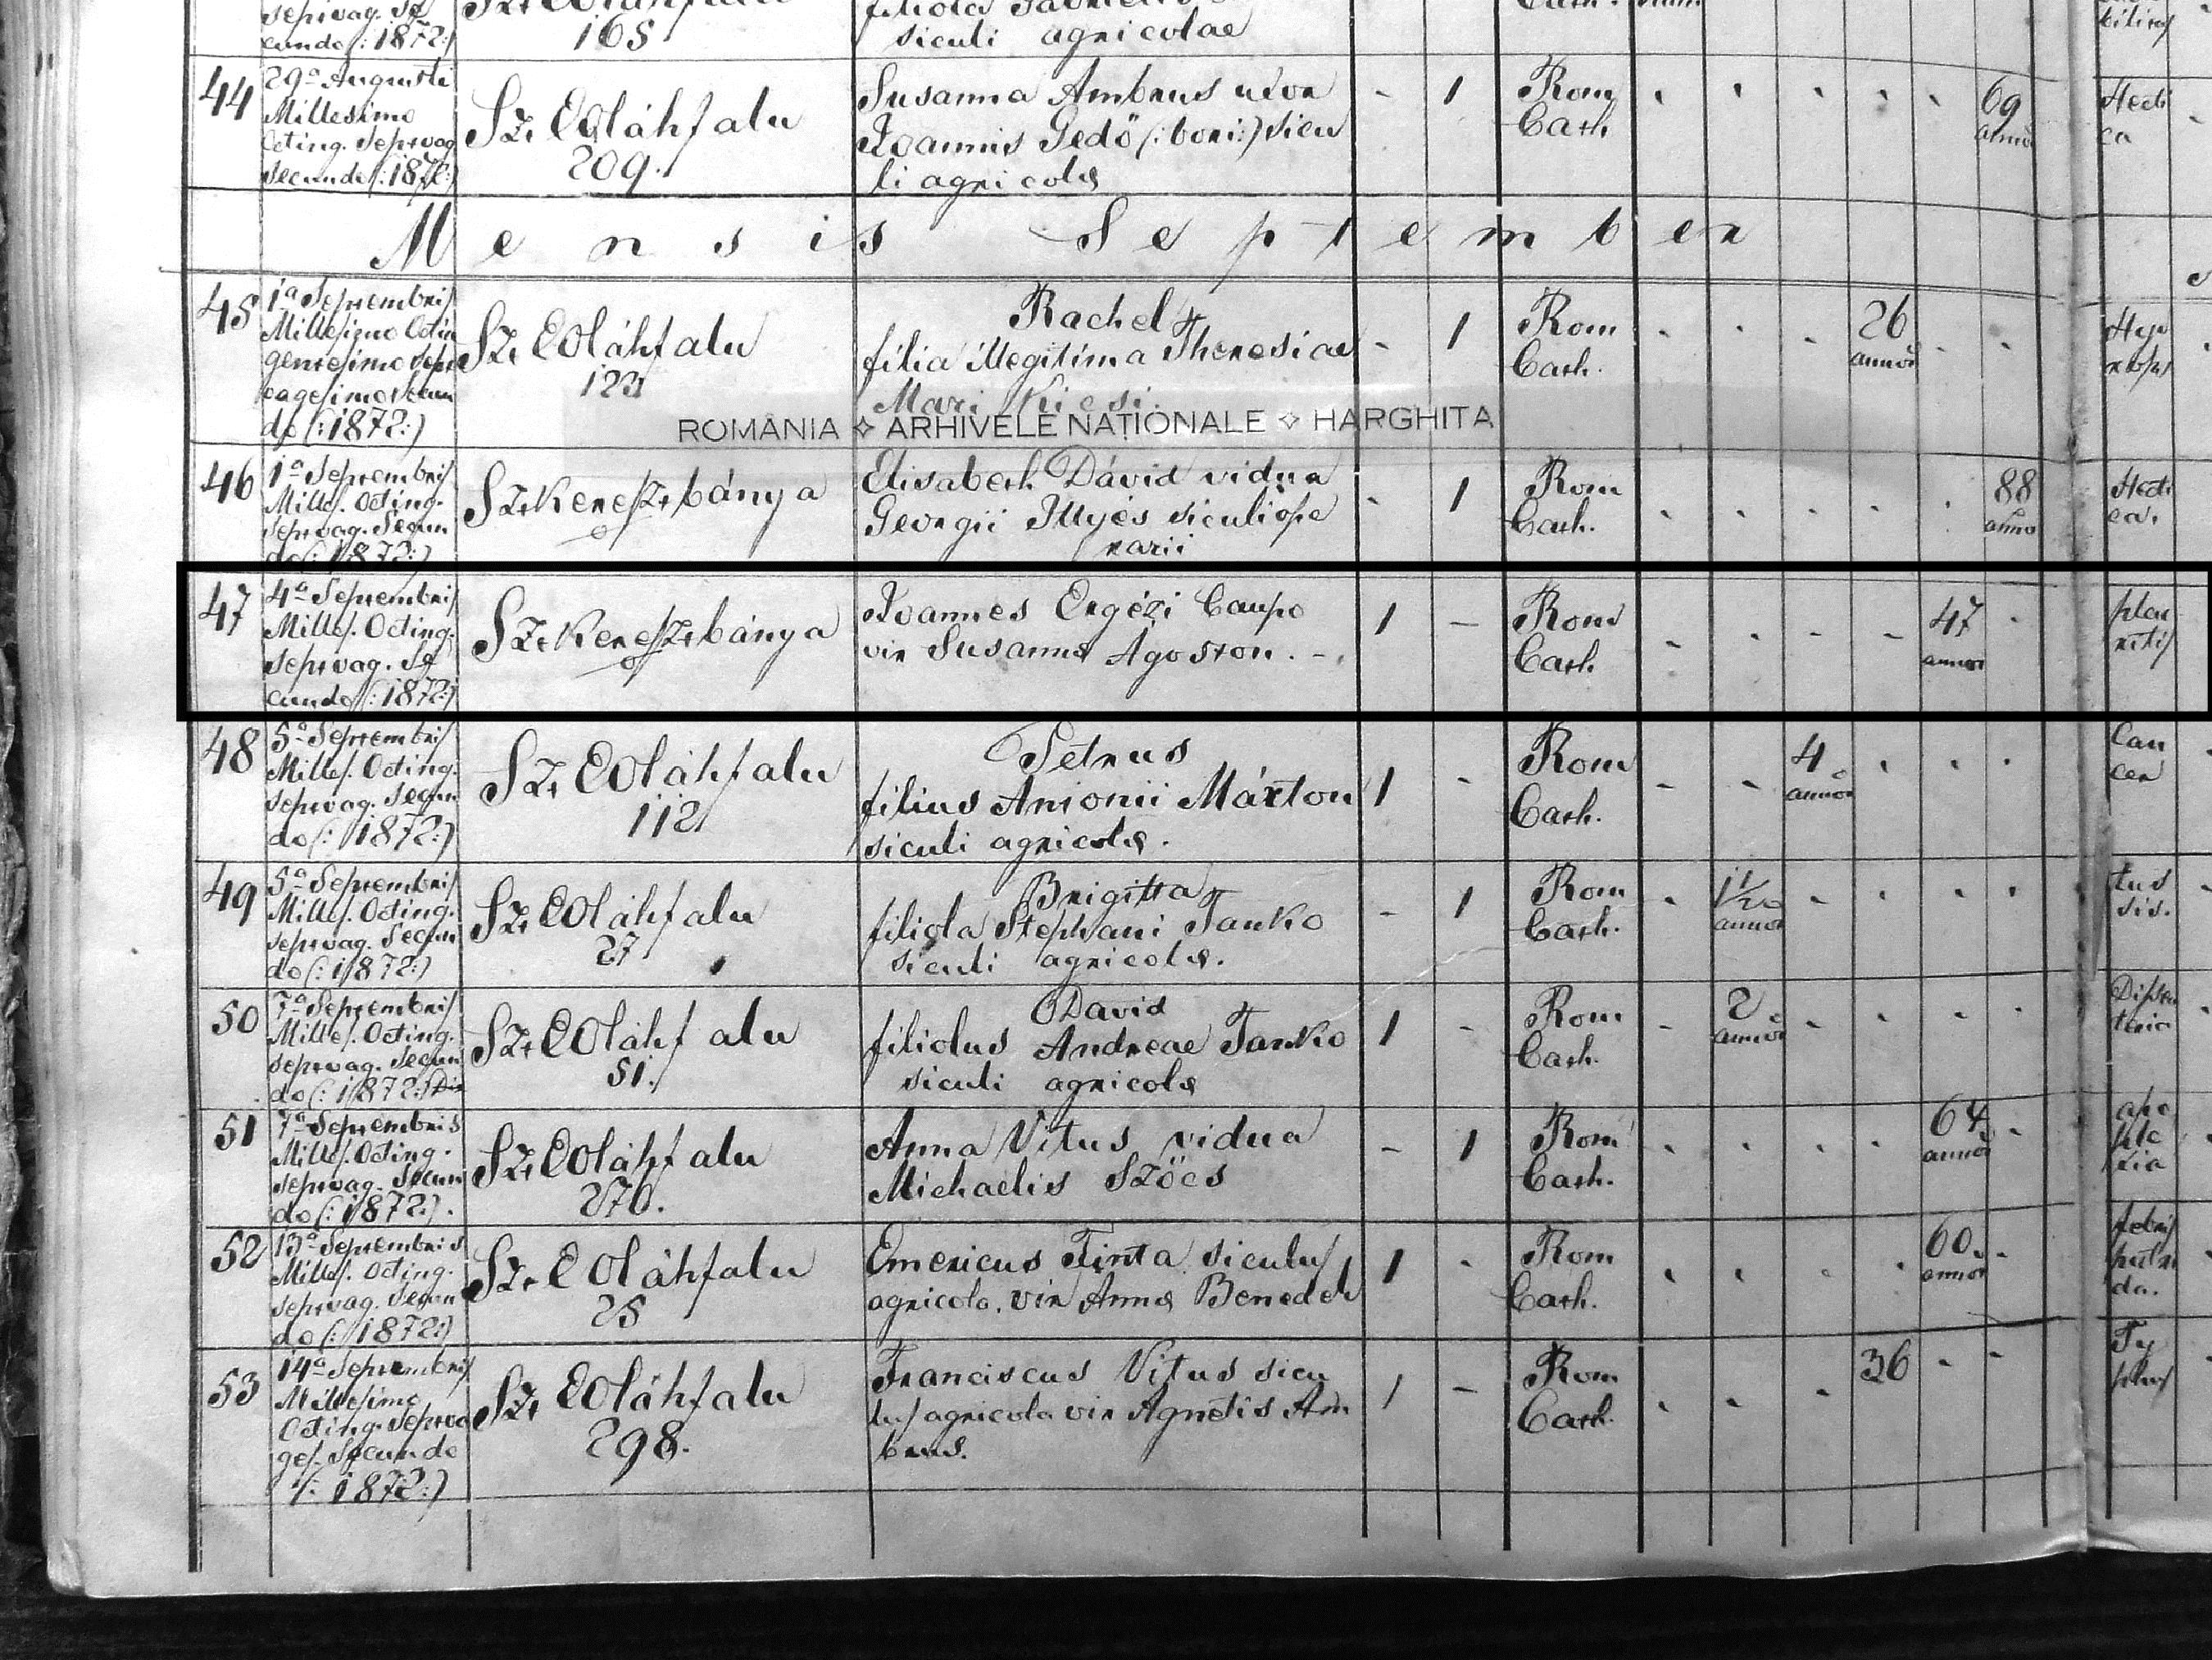 165
siculi agricolae
cundo (:1872:)
44
29ª Augusti
Millesimo
Octing. Septuag
secundo (:1872:)
Sz. Oláhfalu
209.
Susanna Ambrus uxor
Joannis Gedő (:boni:) sicu
li agricolæ
- 1
Rom
Cath
69
annor
Hecti
ca
Mensis September
45
1ª Septembris
Millesimo Octin
gentesimo Septu
agesimo Secun
do (:1872:)
Sz. Oláhfalu
123
Rachel
filia illegitima Theresiae
Mari Kicsi.
- 1
Rom
Cath.
26
annor
ROMÂNIA ✧ ARHIVELE NAȚIONALE ✧ HARGHITA
46
1ª Septembris
Milles. Octing.
Septuag. Secun
do (:1872:)
Sz. Keresztbánya
Elisabeth Dávid vidua
Georgii Illyés siculi ope
rarii
- 1
Rom
Cath.
88
anno
Hecti
ca.
47
4ª Septembris
Milles. Octing.
Septuag. Se
cundo (:1872:)
Sz. Keresztbánya
Joannes Ergézi Caupo
vir Susannæ Ágoston. -.
1 -
Rom
Cath
47
annor
pleu
ritis
48
5ª Septembris
Milles. Octing.
Septuag. Secun
do (: 1872:)
Sz. Oláhfalu
112
Petrus
filius Antonii Márton
siculi agricolæ.
1 -
Rom
Cath.
4
annor
Can
cer
49
5ª Septembris
Milles. Octing.
Septuag. Secun
do (: 1872:)
Sz. Oláhfalu
27
Brigitta
filiola Stephani Tanko
siculi agricolæ.
- 1
Rom
Cath.
annor
tus
sis.
50
7ª Septembris
Milles. Octing.
Septuag. Secun
do (: 1872:)
Sz. Oláhfalu
51.
David
filiolus Andreae Tanko
siculi agricolæ
1 -
Rom
Cath.
2
annor
Dissen
teria
51
7ª Septembris
Milles. Octing.
Septuag. Secun
do (: 1872:).
Sz. Oláhfalu
270.
Anna Vitus vidua
Michaelis Szőcs
- 1
Rom
Cath.
64
annor
apo
ple
xia
52
13ª Septembris
Milles. Octing.
Septuag. Secun
do (: 1872:)
Sz. Oláhfalu
25
Emericus Tinta siculus
agricola. vir Annæ Benedek
1 -
Rom
Cath.
60
annor
febris
putri
da.
53
14ª Septembris
Millesimo
Octing. Septua
ges. Secundo
(: 1872:)
Sz. Oláhfalu
298.
Franciscus Vitus sicu
lus agricola vir Agnetis Am
brus.
1 -
Rom
Cath.
36
Ty
phus